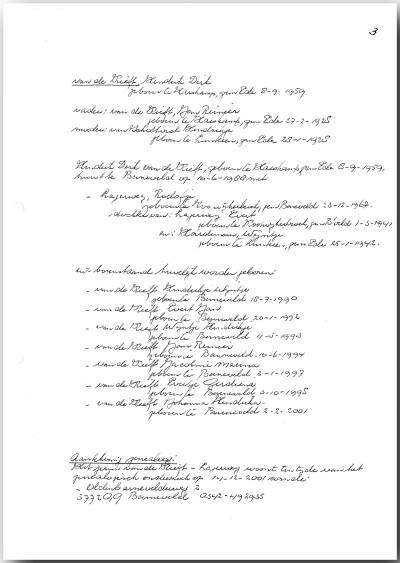 3
van de Kieft, Hendrik Dirk
geboren te Harskamp, gem Ede 8-9-1959
vader: van de Kieft, Jan Reinier
geboren te Harskamp, gem Ede 27-2-1925
moeder: van
geboren te Lunteren, gem Ede 28-1-1928
Hendrik Dirk van de Kieft, geboren te Harskamp, gem Ede 8-9-1959,
huwt te Barneveld op 10-6-1988 met
- Lagerwey,
geboren te gem Barneveld 23-12-1968
dochter van: Lagerwey Evert
geboren te 1-3-1941
en: Hardeman, Wijntje
geboren te Lunteren, gem Ede 25-1-1942.
uit bovenstaand huwelijk werden geboren:
- van de Kieft Hendrikje Wijntje
geboren te Barneveld 18-7-1990
- van de Kieft Evert Jan
geboren te Barneveld 20-1-1992
- van de Kieft Wijntje Hendrikje
geboren te Barneveld 11-5-1993
- van de Kieft Jan Reinier
geboren te Barneveld 10-6-1994
- van de Kieft Jacobine
geboren te Barneveld 3-1-1997
- van de Kieft Evertje Gerdiena
geboren te Barneveld 3-10-1998
- van de Kieft Johanna Hendrika
geboren te Barneveld 2-2-2001
Aantekening genealogie:
Het gezin van de Kieft - Lagerwey woont ten tijde van het
genealogisch onderzoek op 14-12-2001 aan de
- Oldenbarnevelderweg 2
Barneveld 0342-